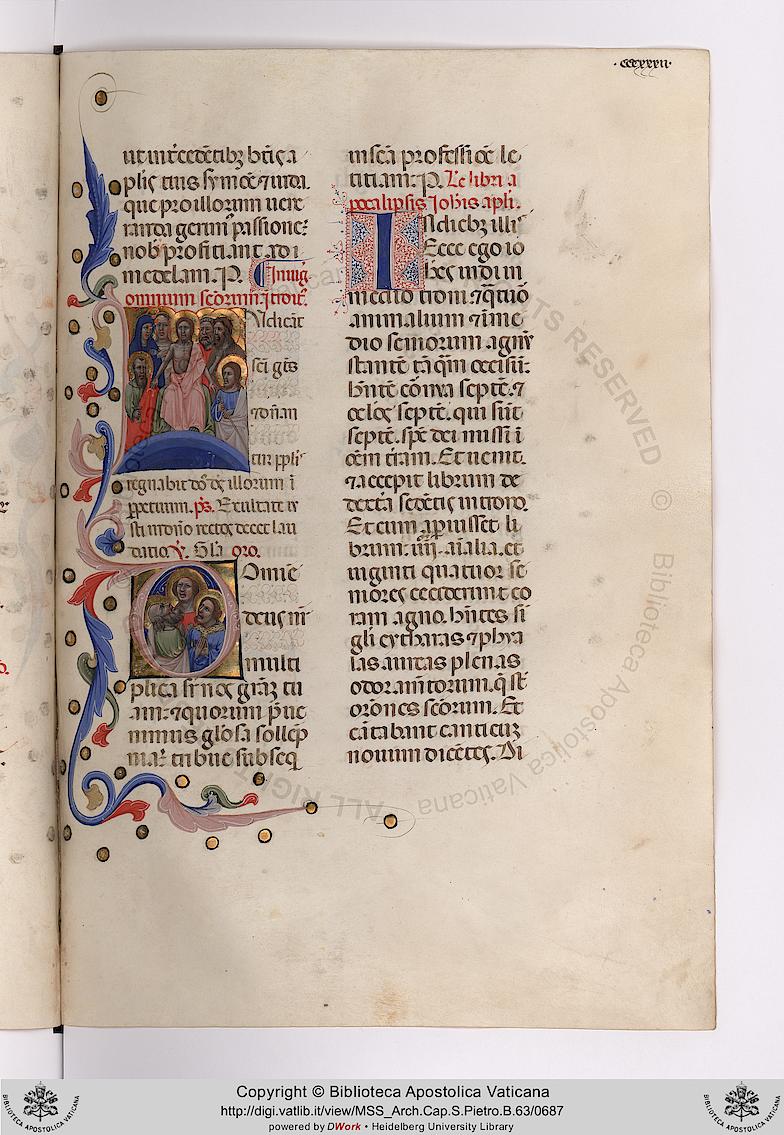 .cccxxxii.
ut int'cedētibȝ btīs a
plis tuis symōe ⁊ iuda.
que pro illorum uene
randa gerim' passione:
nob' profitiant ad
medelam. P. In uig
omnium scōrum introit'.
Iudicāt
scī gēs
⁊ dn̄an
tur ppl'is
regnabit dn̄s dс̄ illorum ī
ꝑpetuum. ps. Exultate iu
sti in dn̄o rectos decet lau
datio. V. Gl̄a oro.
Omīe
deus nr̄
multi
plica sr̄ nos grāȝ tu
am: ⁊ quorum p̄ue
nimus gl̄osa sollep̄
nia: tribue subseq
in scā professiōe le
titiam. P. Lc̄ libri a
pocalipsis Ioh̄is apl̄i.
In diebȝ illis
Ecce ego io
h̄es uidi in
medio troni ⁊ q̄tuor
animalium ⁊ ī me
dio seniorum agnū
stantē tāq̄m occisū:
h̄ntē cornua septē. ⁊
oclos septē. qui sūt
septē. sp̄c dei missi ī
oēm t'ram. Et uenit.
⁊ accepit librum de
dext'a sedētis in trono.
Et cum apꝑuisset li
brum. iiij. aīalia. et
uiginti quatuor se
niores ceciderunt co
ram agno. h̄ntes sī
guli cytharas ⁊ phya
las aureas plenas
odoram̄torum. q̄ st̄
orōnes scōrum. Et
cātabant canticuȝ
nouum dicētes. Di
ALL RIGHTS RESERVED © Biblioteca Apostolica Vaticana
Copyright © Biblioteca Apostolica Vaticana
http://digi.vatlib.it/view/MSS_Arch.Cap.S.Pietro.B.63/0687
powered by DWork • Heidelberg University Library
BIBLIOTECA APOSTOLICA VATICANA
BIBLIOTECA APOSTOLICA VATICANA